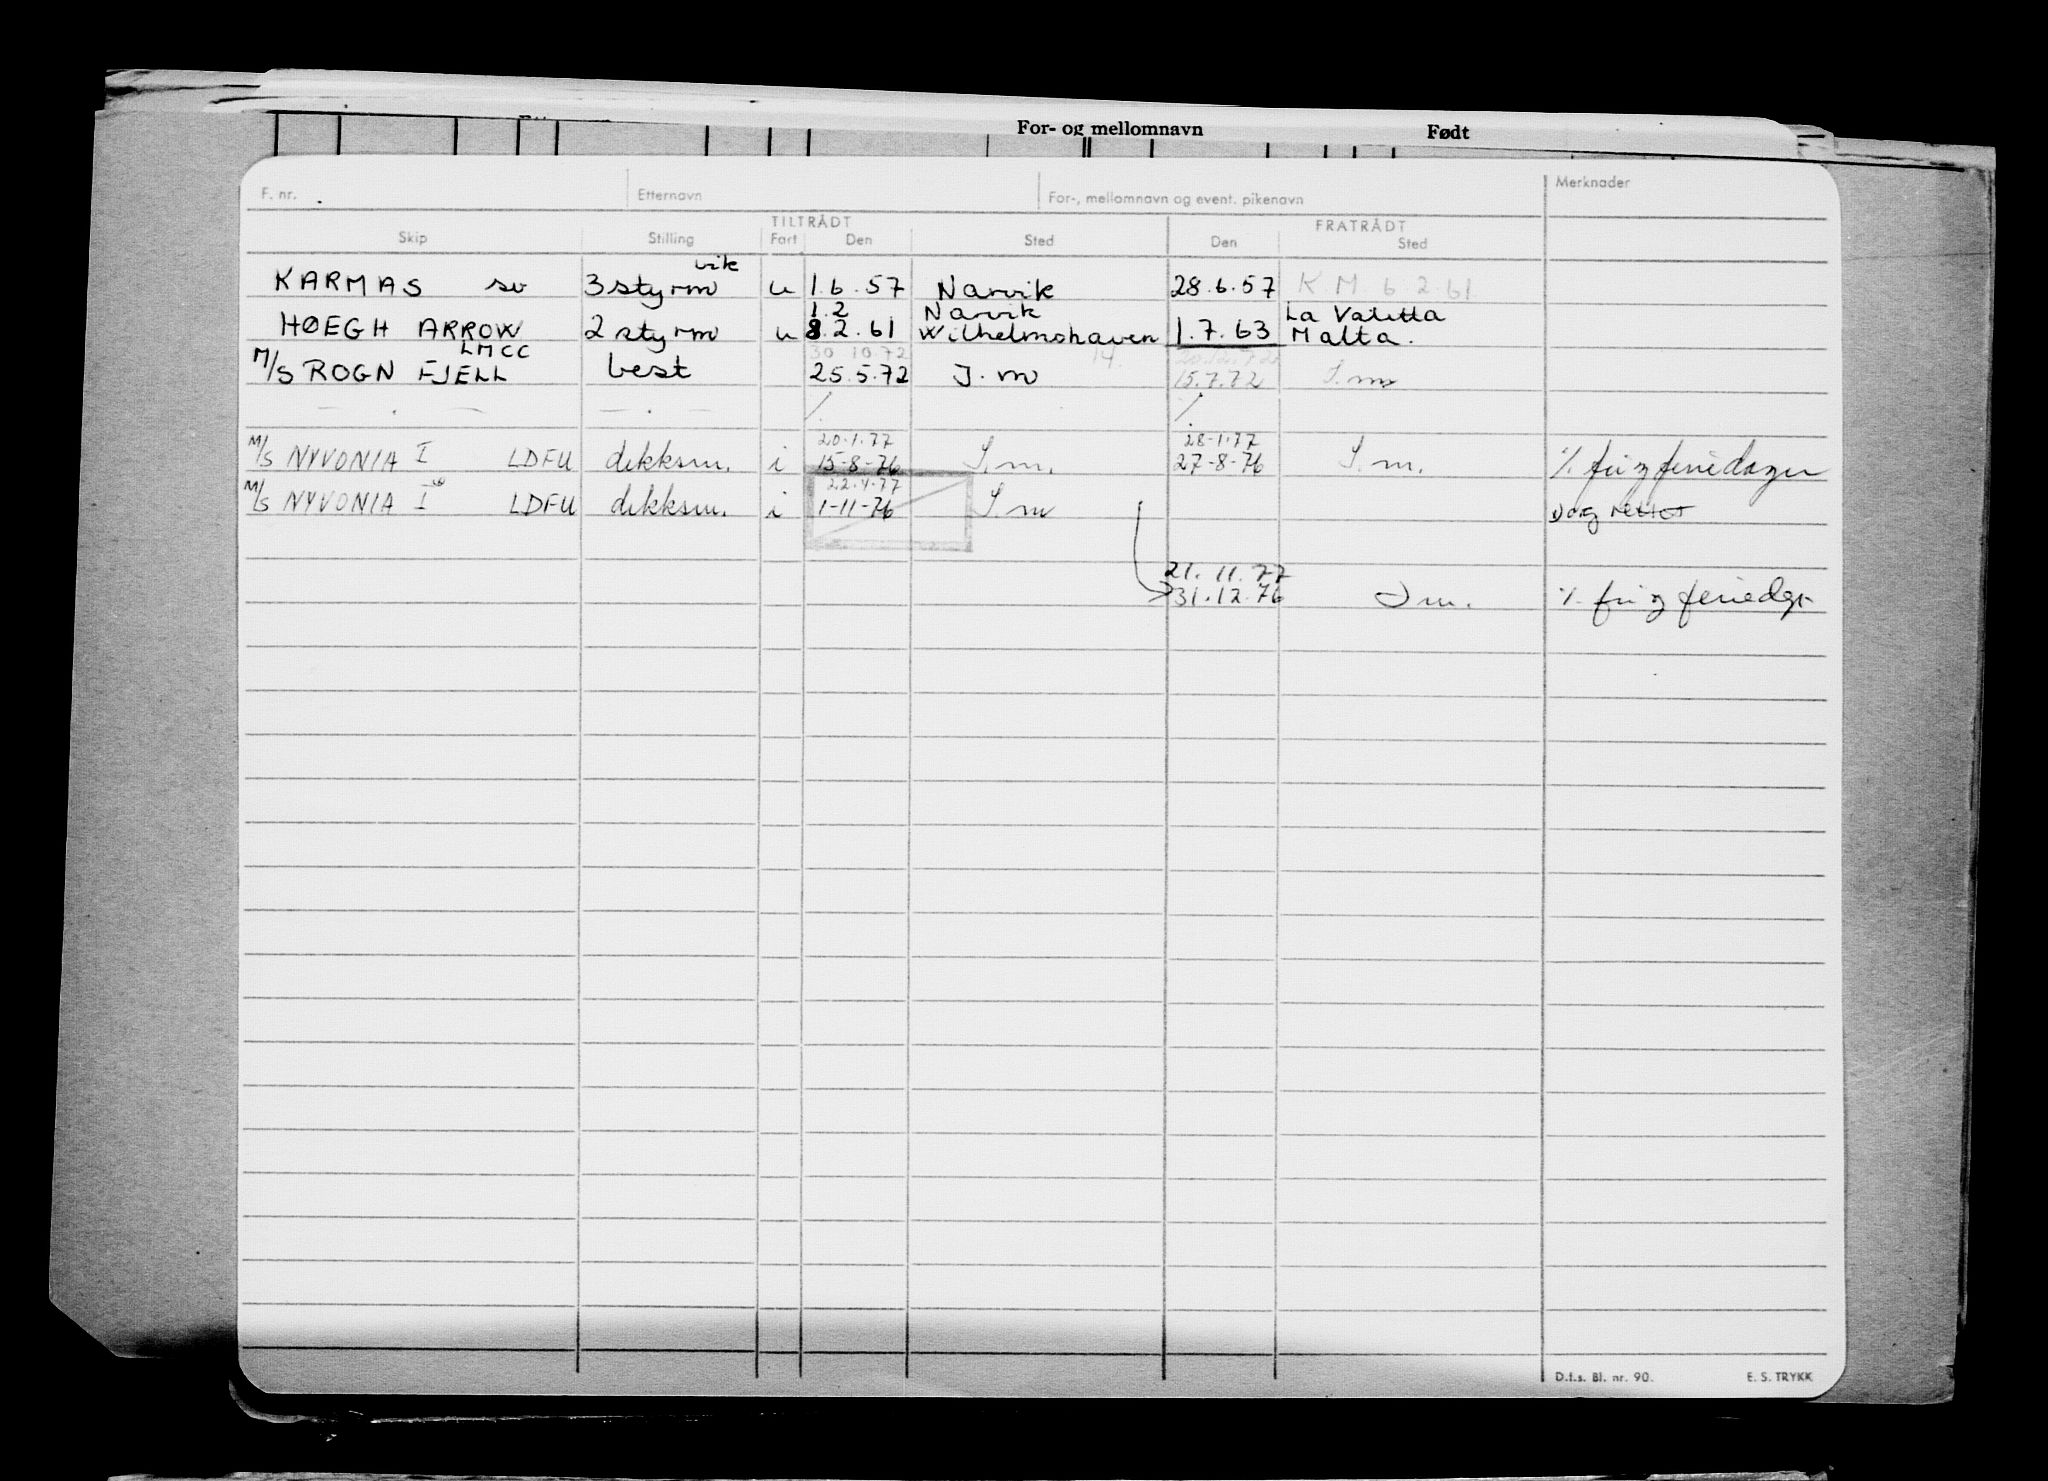 For- og mellomnavn Født
F. nr. Etternavn For-, mellomnavn og event. pikenavn Merknader
TILTRÅDT FRATRÅDT
Skip Stilling Fart Den Sted Den Sted
vik
KARMAS sv 3 styrm u 1.6.57 Narvik 28.6.57 K M 6.2.61
1.2 Narvik La Valetta
HØEGH ARROW 2 styrm u 8.2.61 Wilhelmshaven 1.7.63 Malta.
LMCC 30.10.72 14. 20.12.72
M/S ROGN FJELL best 25.5.72 I.m 15.7.72 I.m
— . — — . — /. /.
20.1.77 28-1.77
M/S NYVONIA I LDFU dekksm. i 15-8-76 I.m. 27-8-76 I.m. %. fri og feriedager
22.4.77
M/S NYVONIA I LDFU dekksm. i 1-11-76 I.m Dag rettet
21.11.77
31.12.76 I m. %. fri og feriedgr
D.f.s. Bl. nr. 90. E. S. TRYKK